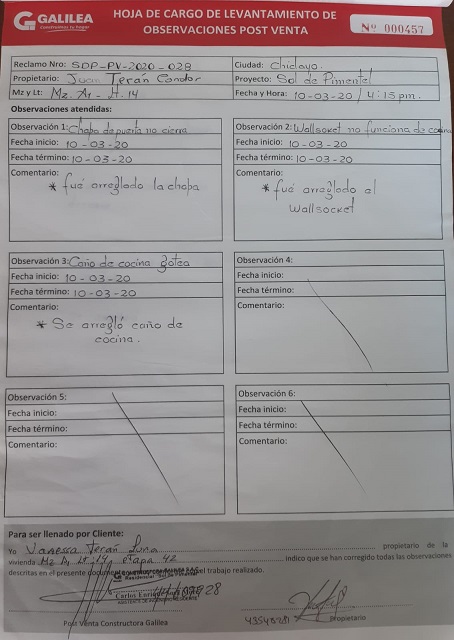 GALILEA
Construimos tu hogar
HOJA DE CARGO DE LEVANTAMIENTO DE
OBSERVACIONES POST VENTA
Nº 000457
Reclamo Nro: SDP-PV-2020-028
Ciudad: Chiclayo.
Propietario: Juan Terán Condor
Proyecto: Sol de Pimentel
Mz y Lt: Mz. A1 - Lt. 14
Fecha y Hora: 10-03-20 / 4:15 pm.
Observaciones atendidas:
Observación 1: Chapa de puerta no cierra
Fecha inicio: 10-03-20
Fecha término: 10-03-20
Comentario:
* fué arreglado la chapa
Observación 2: Wallsocket no funciona de cocina
Fecha inicio: 10-03-20
Fecha término: 10-03-20
Comentario:
* fué arreglado el
Wallsocket
Observación 3: Caño de cocina gotea
Fecha inicio: 10-03-20
Fecha término: 10-03-20
Comentario:
* Se arregló caño de
cocina.
Observación 4:
Fecha inicio:
Fecha término:
Comentario:
Observación 5:
Fecha inicio:
Fecha término:
Comentario:
Observación 6:
Fecha inicio:
Fecha término:
Comentario:
Para ser llenado por Cliente:
Yo Vanessa Terán Luna propietario de la
vivienda Mz A1 Lt 14, etapa 42 indico que se han corregido todas las observaciones
descritas en el presente el trabajo realizado.
Carlos
Post Venta Constructora Galilea
43548281 Propietario